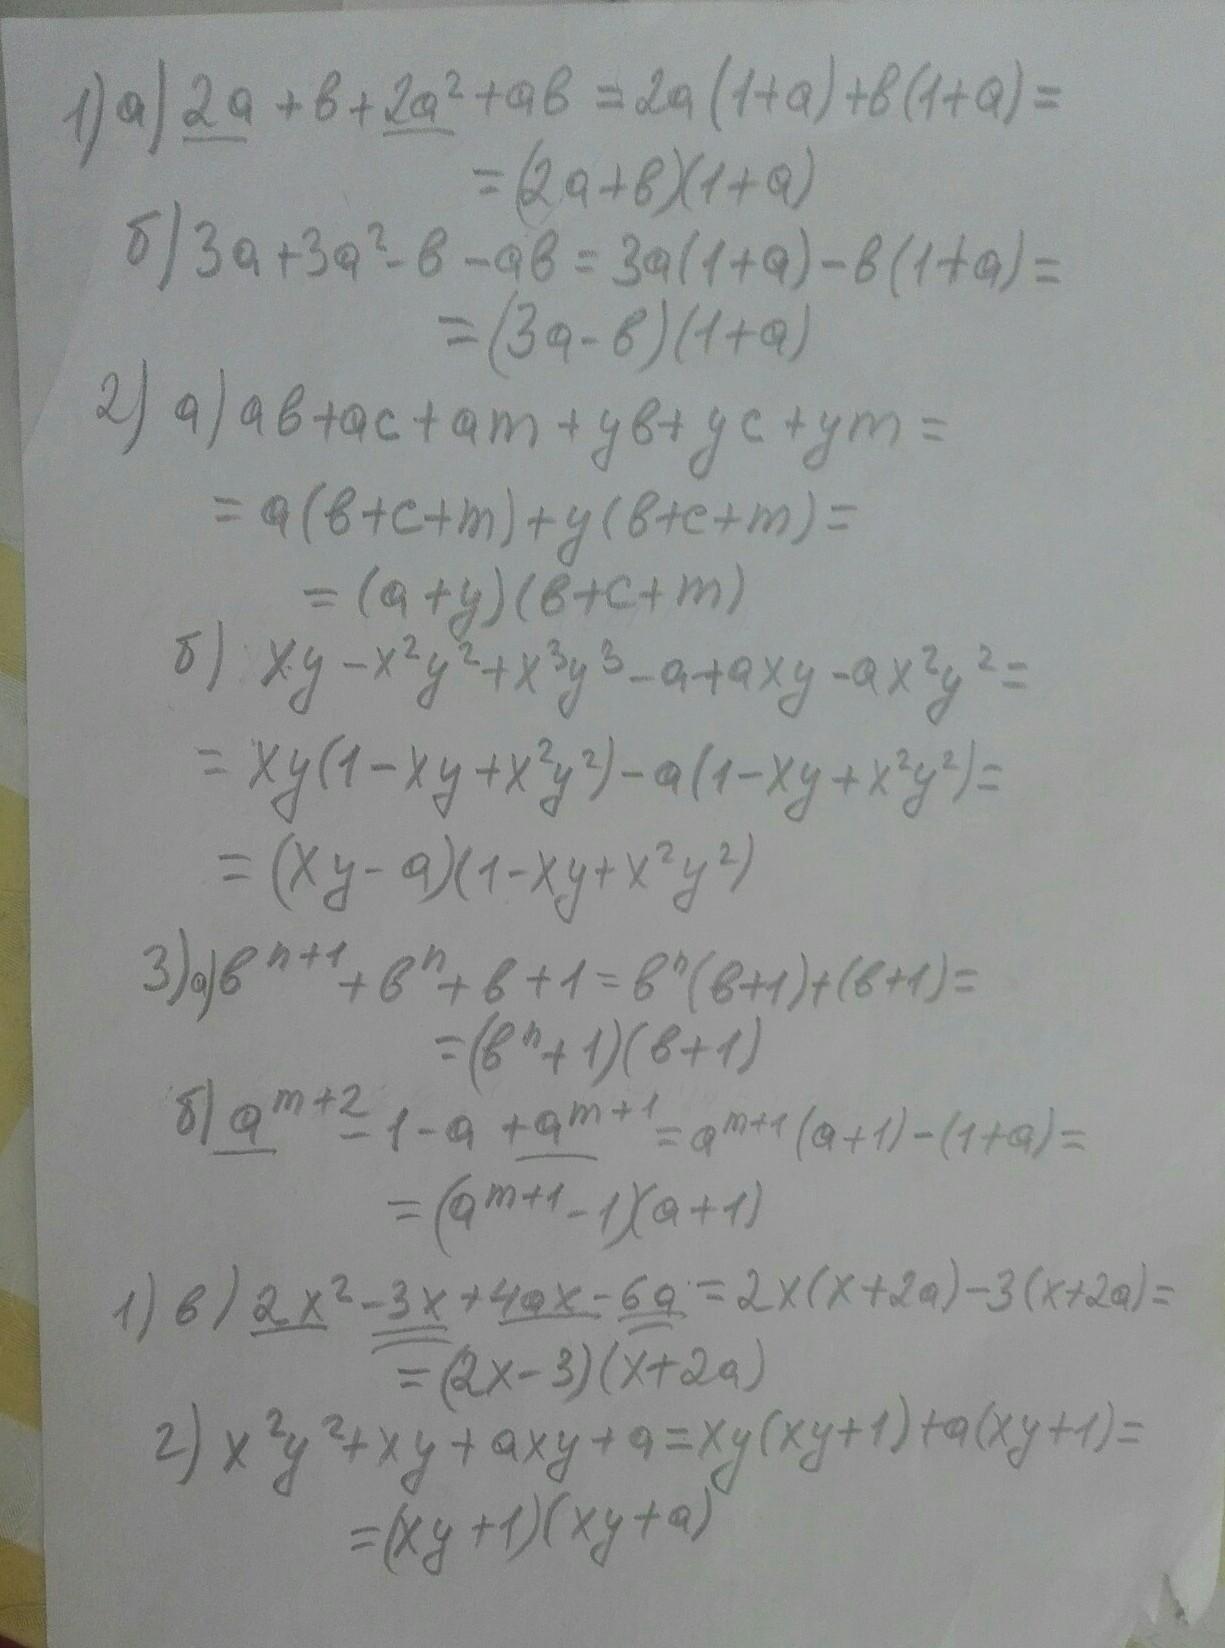 1) а) 2a + b + 2a² + ab = 2a(1+a) + b(1+a) =
= (2a+b)(1+a)
б) 3a + 3a² - b - ab = 3a(1+a) - b(1+a) =
= (3a - b)(1+a)
2) а) ab + ac + am + yb + yc + ym =
= a(b+c+m) + y(b+c+m) =
= (a+y)(b+c+m)
б) xy - x²y² + x³y³ - a + axy - ax²y² =
= xy(1 - xy + x²y²) - a(1 - xy + x²y²) =
= (xy - a)(1 - xy + x²y²)
3) а) bⁿ⁺¹ + bⁿ + b + 1 = bⁿ(b+1) + (b+1) =
= (bⁿ + 1)(b+1)
б) aᵐ⁺² - 1 - a + aᵐ⁺¹ = aᵐ⁺¹(a+1) - (1+a) =
= (aᵐ⁺¹ - 1)(a+1)
1) в) 2x² - 3x + 4ax - 6a = 2x(x+2a) - 3(x+2a) =
= (2x - 3)(x+2a)
г) x²y² + xy + axy + a = xy(xy+1) + a(xy+1) =
= (xy+1)(xy+a)